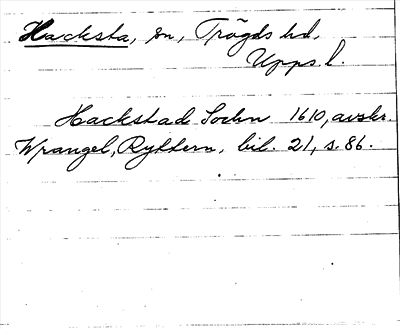 Hacksta, sn, Trögds hd,
Upps l.
Hackstad Sockn 1610, avskr.
Wrangel, Ryttern, bil. 21, s. 86.